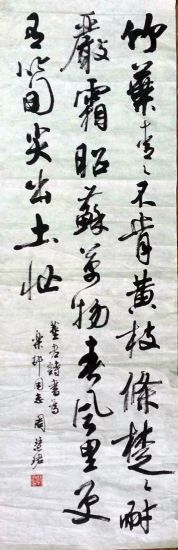 竹葉青々不肯黃枝條楚々耐
嚴霜昭蘇萬物春風里更
有筍尖出土忙
董老詩書為
樂邦同志 周慧珺